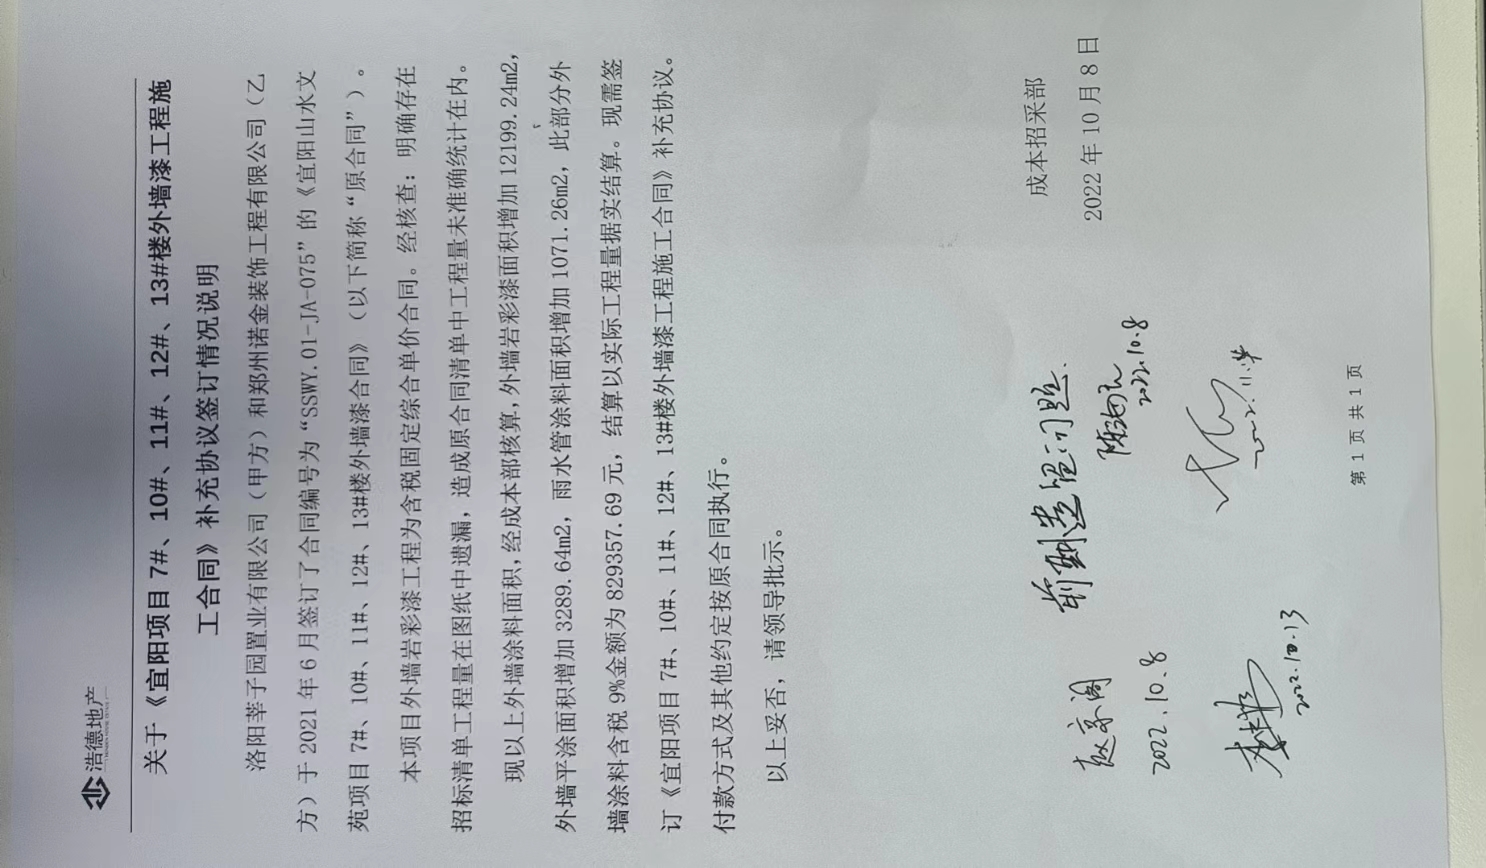 浩德地产
关于《宜阳项目 7#、10#、11#、12#、13#楼外墙漆工程施
工合同》补充协议签订情况说明
洛阳莘子园置业有限公司（甲方）和郑州诺金装饰工程有限公司（乙
方）于 2021 年 6 月签订了合同编号为“SSWY.01-JA-075”的《宜阳山水文
苑项目 7#、10#、11#、12#、13#楼外墙漆合同》（以下简称“原合同”）。
本项目外墙岩彩漆工程为含税固定综合单价合同。经核查：明确存在
招标清单工程量在图纸中遗漏，造成原合同清单中工程量未准确统计在内。
现以上外墙涂料面积,经成本部核算,外墙岩彩漆面积增加 12199.24m2,
外墙平涂面积增加 3289.64m2，雨水管涂料面积增加 1071.26m2，此部分外
墙涂料含税 9%金额为 829357.69 元，结算以实际工程量据实结算。现需签
订《宜阳项目 7#、10#、11#、12#、13#楼外墙漆工程施工合同》补充协议。
付款方式及其他约定按原合同执行。
以上妥否，请领导批示。
成本招采部
2022 年 10 月 8 日
前期遗留问题.
2022.10.8
2022.10.8
2022.10.13
第 1 页 共 1 页